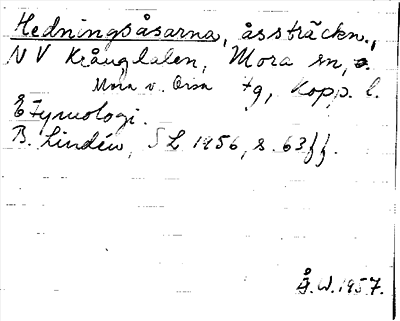 Hedningsåsarna, åssträckn.,
NV Krånglaten, Mora sn,
Mora o. Orsa tg, Kopp. l.
Etymologi.
B. Lindén, SL 1956, s. 63ff.
Å.W. 1957.